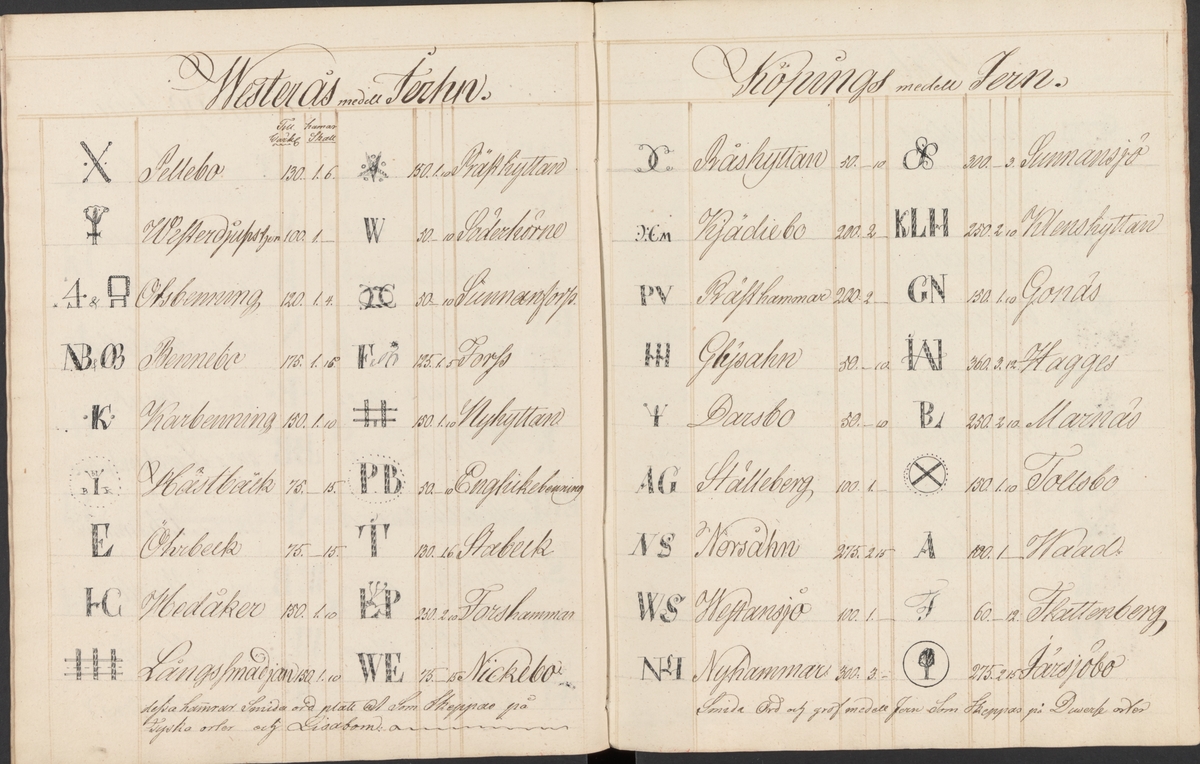 Westerås medell Jerhn.
Till hamar
Skatt
Pellebo 130. 1. 6
150. 1. 10 Räfshyttan
100. 1.
W 50. — 10 Söderhörne
A. & Olsbenning 120. 1. 4.
50. — 10 Sunnanforss
NB, OB Bennebo 175. 1. 15
F 125. 1. 5 Forss
K Karbenning 150. 1. 10
150. 1. 10 Nyhyttan
Y Hästbäck 75. — 15.
PB 50. — 10 Englikebenning
E Öhrbeck 75. — 15
T 130. 1. 6 Stabeck
HC Hedåker 150. 1. 10
EP 250. 2. 10 Forshammar
Långssmedjan 150. 1. 10
WE 75. — 15 Nickebo
dessa hamrar Smida ord. platt som Skeppas på
Tyska orter och Lissabon.
Köpings medell Jern.
Råshyttan 50. — 10
300. — 3. Sunnansjö
Kjädiebo 200. 2 —
KLH 250. 2. 10 Klenshyttan
PV Räfshammar 200. 2 —
GN 150. 1. 10 Gonäs
Ghysahn 50. — 10.
360. 3. 12 Hagges
Y Darsbo 50. — 10
B. 250. 2. 10. Marnäs
AG Ställeberg 100. 1. —
150. 1. 10 Tollsbo
NS Norsåhn 275. 2. 15
A 100. 1 — Waads
WS Westansjö 100. 1. —
F 60. — 12. Skattenberg
Nyhammars 300. 3. —
275. 2. 15 Järsjöbo
Smida Ord och grof medell Jern Som Skeppas på Diverse orter